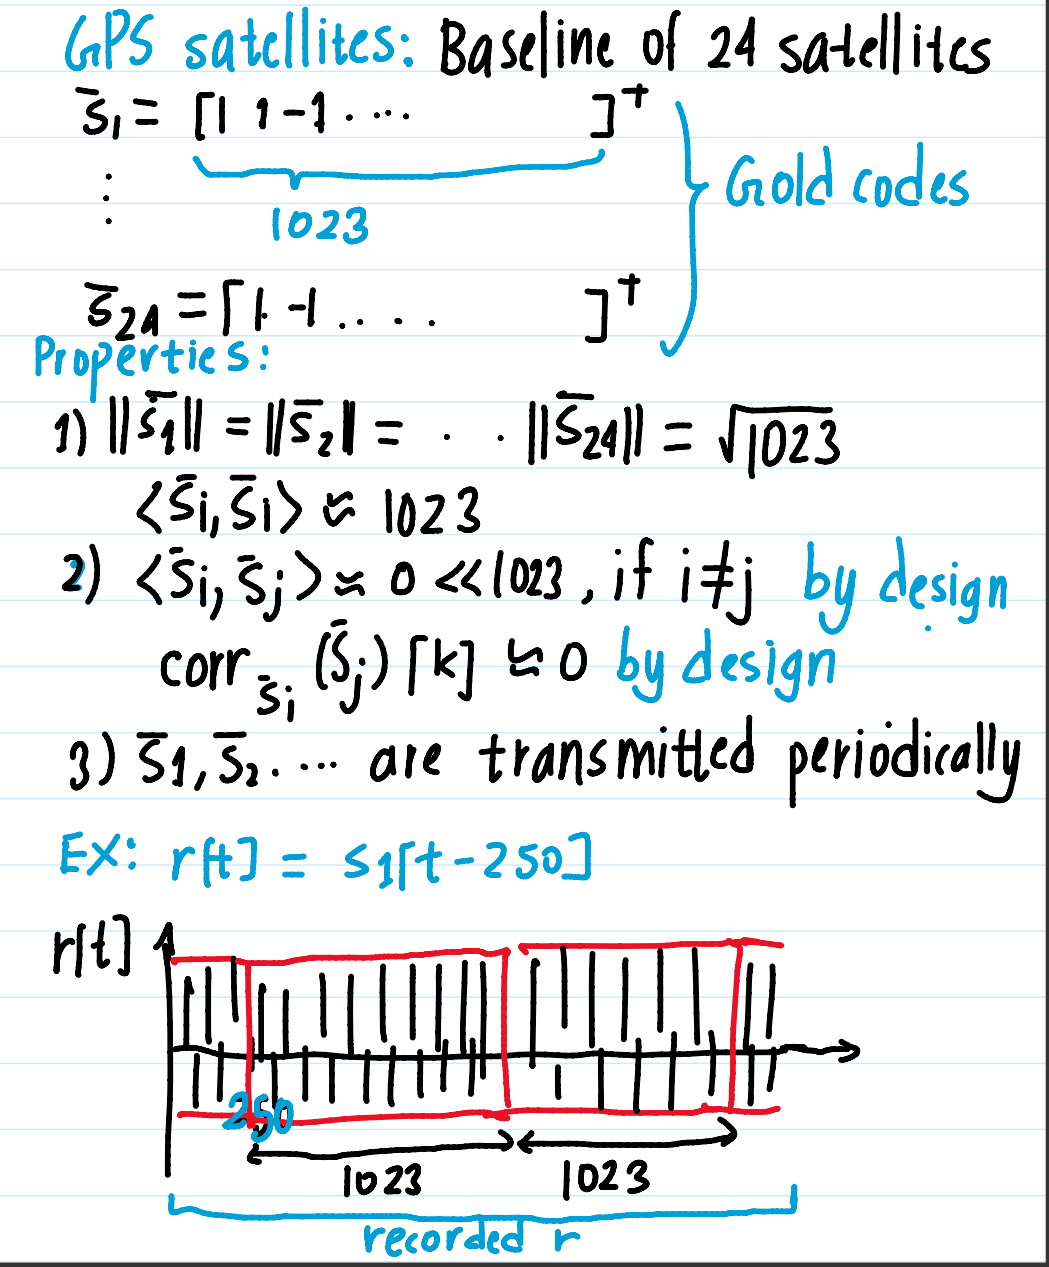 GPS satellites: Baseline of 24 satellites
s̄₁ = [1 1 -1 . ... ]ᵀ
1023
Gold codes
⋮
s̄₂₄ = [1 -1 .... ]ᵀ
Properties:
1) ||s̄₁|| = ||s̄₂|| = . . ||s̄₂₄|| = √1023
<s̄i, s̄i> ≈ 1023
2) <s̄i, s̄j> ≈ 0 << 1023, if i≠j by design
corr_s̄i (s̄j) [k] ≈ 0 by design
3) s̄1, s̄2. ... are transmitted periodically
EX: r[t] = s1[t-250]
r[t]
250
1023 1023
recorded r